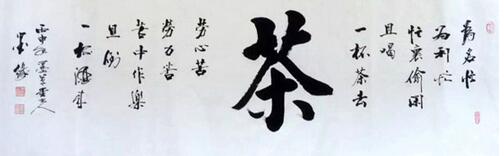 為名忙
为利忙
忙裏偷闲
且喝
一杯茶去
茶
勞心苦
勞力苦
苦中作樂
且倒
一杯酒來
丙申
墨缘